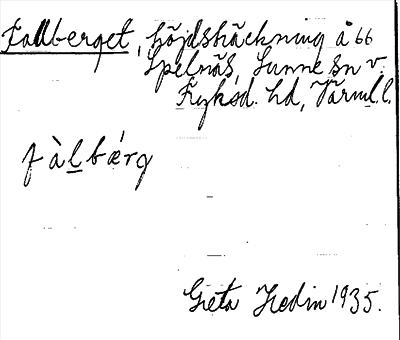 Fallberget, höjdsträckning å 66
Spelnäs, Sunne sn v.
Fryksd. hd, Värml. l.
fàlbǽrg
Greta Hedin 1935.